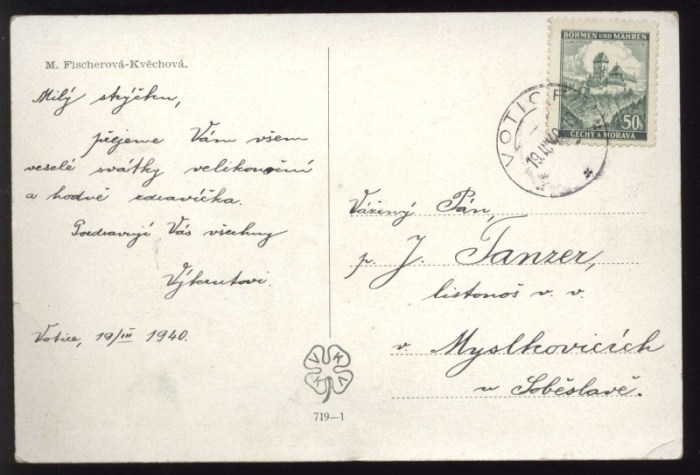 M. Fischerová-Kvěchová.
Milý strýčku,
přejeme Vám všem
veselé svátky velikonoční
a hodně zdravíčka.
Pozdravují Vás všechny
Votice, 19/III 1940.
BÖHMEN UND MÄHREN
50h
ČECHY A MORAVA
VOTICE
19.III.40
Vážený Pán,
p. J. Tanzer,
listonoš v. v.
v Myslkovicích
u Soběslavě.
V K V K
719—1